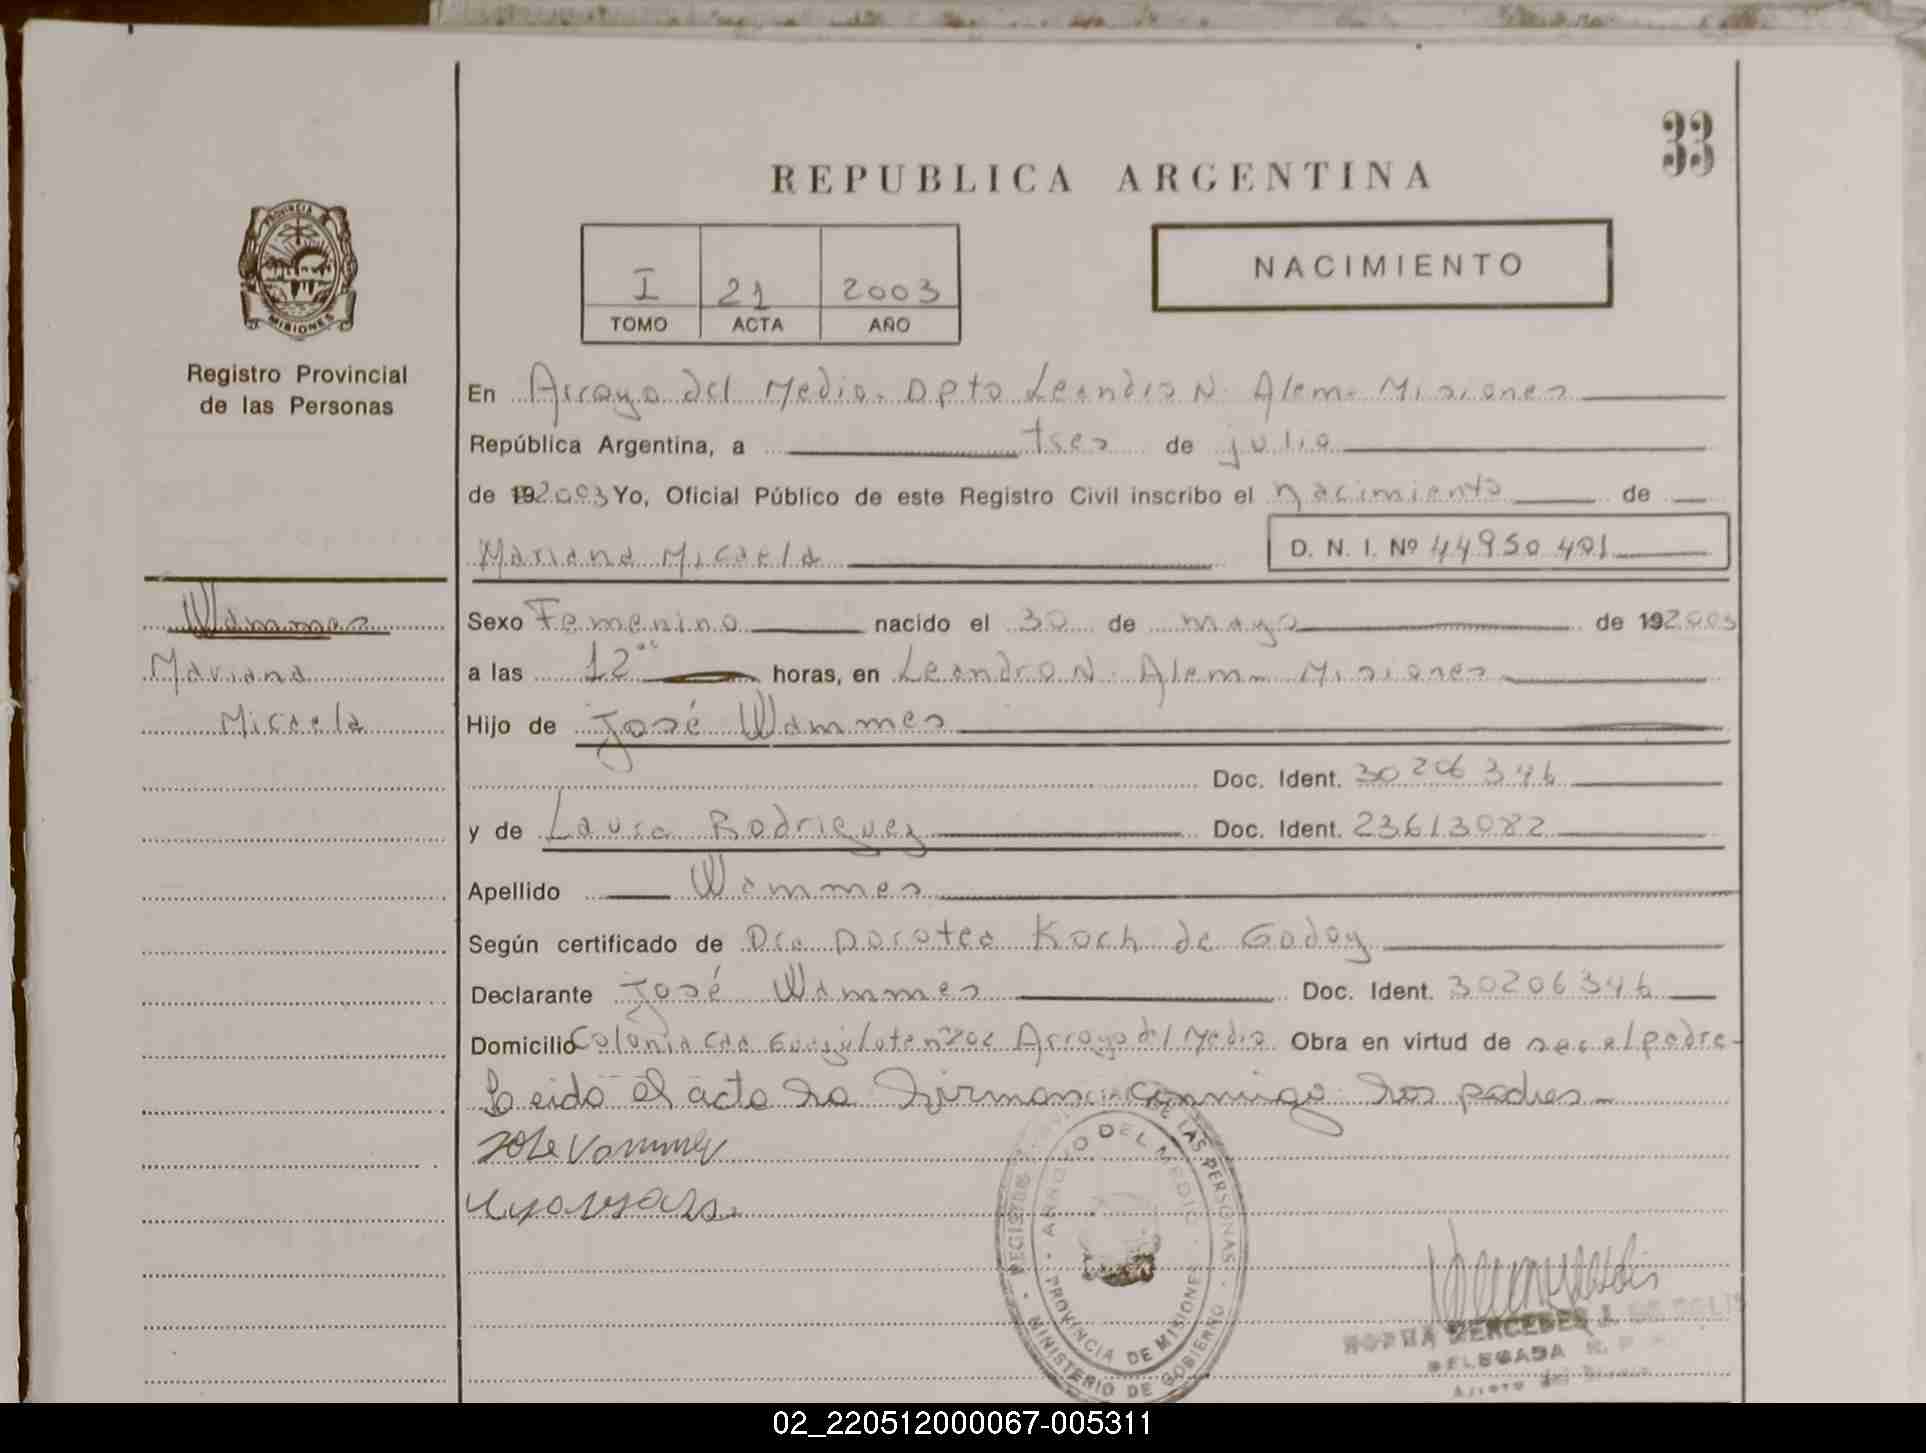 33
REPUBLICA ARGENTINA
PROVINCIA DE
MISIONES
Registro Provincial
de las Personas
I 21 2003
TOMO ACTA AÑO
NACIMIENTO
En Arroyo del Medio. Dpto Leandro N. Alem. Misiones
República Argentina, a tres de julio
de 192003 Yo, Oficial Público de este Registro Civil inscribo el nacimiento de
Mariana Micaela D. N. I. Nº 44950401
Wammes
Mariana
Micaela
Sexo Femenino nacido el 30 de mayo de 192003
a las 12 horas, en Leandro N. Alem. Misiones
Hijo de José Wammes
Doc. Ident. 30206346
y de Laura Rodriguez Doc. Ident. 23613082
Apellido Wammes
Según certificado de Dra Dorotea Koch de Godoy
Declarante José Wammes Doc. Ident. 30206346
Domicilio Colonia Arroyo del Medio Obra en virtud de ser el padre
Leido el acta la firman conmigo los padres
REGISTRO DE LAS PERSONAS
ARROYO DEL MEDIO
PROVINCIA DE MISIONES
MINISTERIO DE GOBIERNO
NORMA MERCEDES J. DE SOLIS
DELEGADA R. P.
Arroyo del Medio
02_220512000067-005311